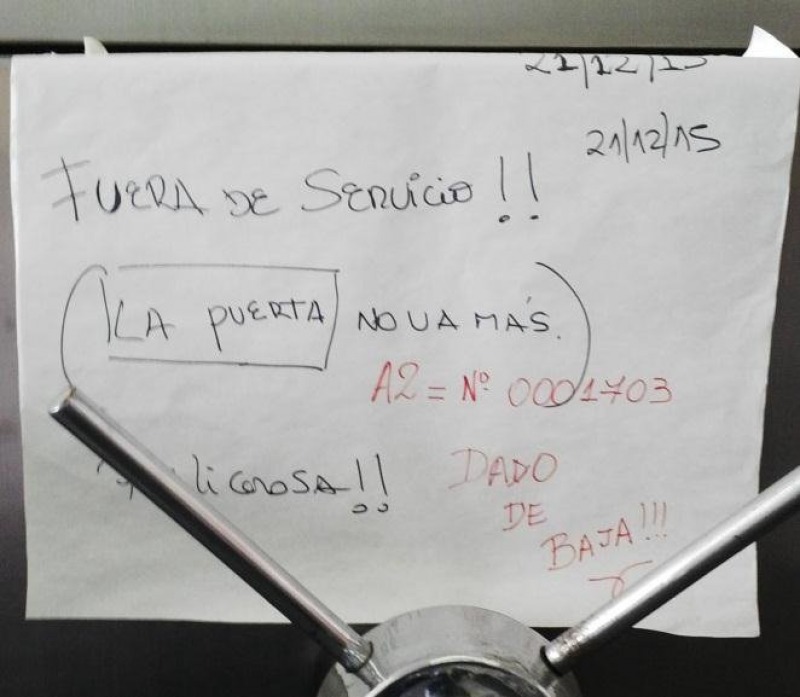 21/12/15
21/12/15
FUERA DE SERVICIO!!
(LA PUERTA NO VA MÁS.)
A2 = Nº 0001703
DADO
DE
BAJA!!!